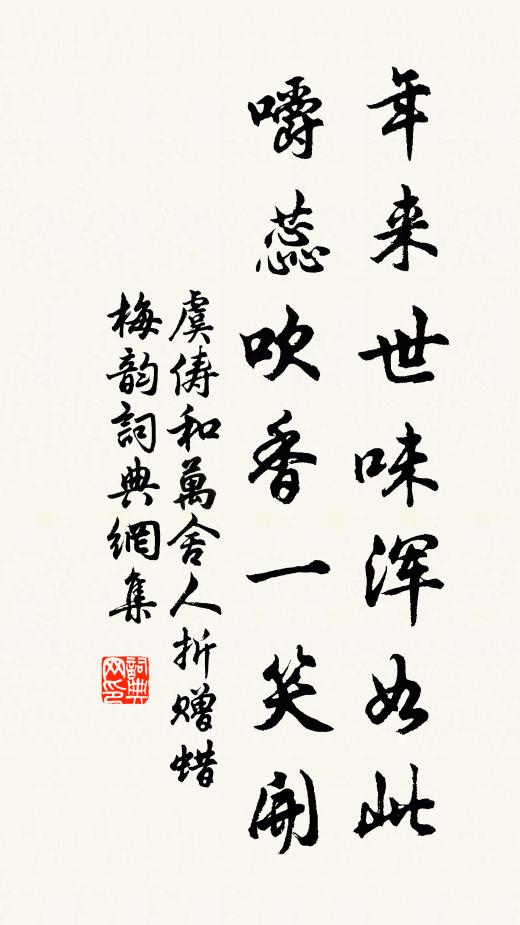 年来世味浑如此
嚼蕊吹香一笑開
虞俦和萬舍人折赠蜡
梅韵詞典網集
詞典
网印